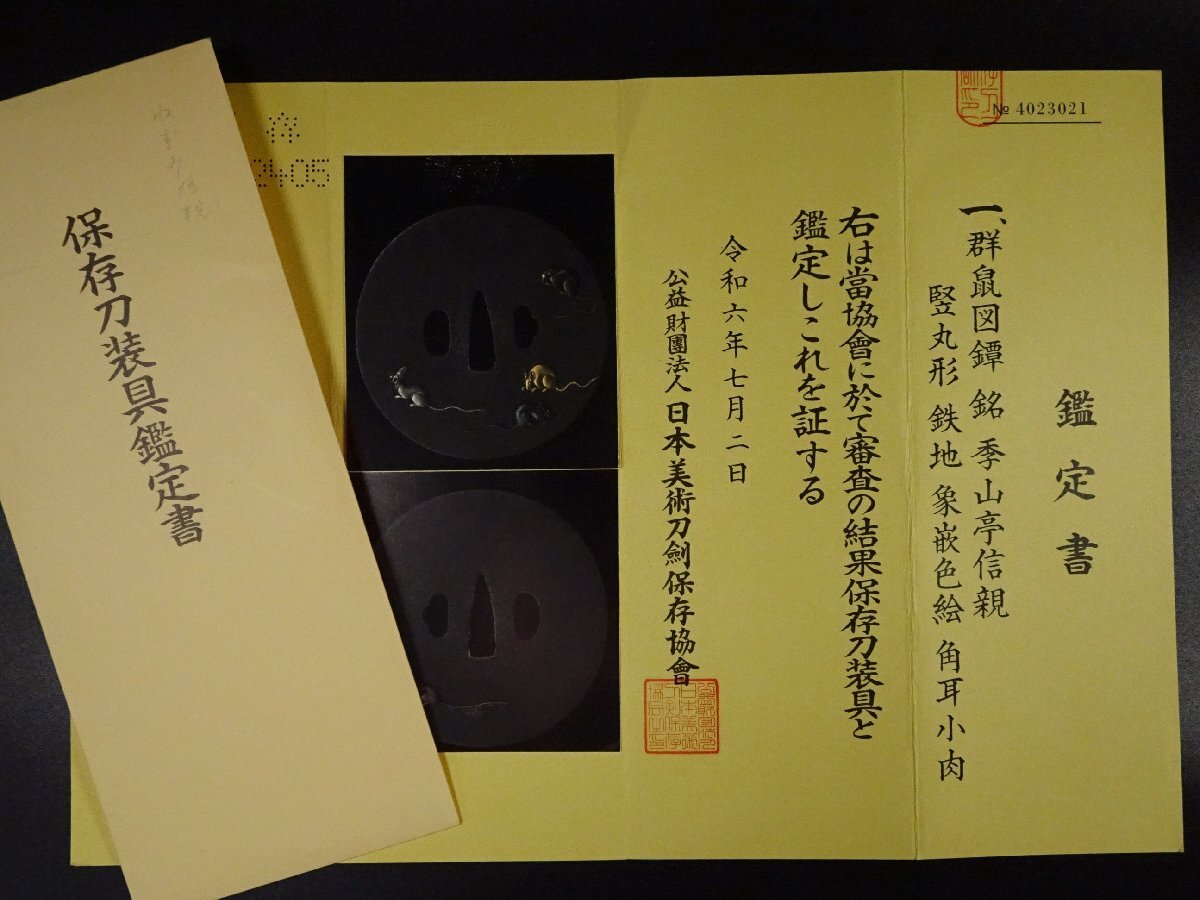 № 4023021
鑑定書
一、群鼠図鐔 銘 季山亭信親
竪丸形 鉄地 象嵌色絵 角耳小肉
右は當協會に於て審査の結果保存刀装具と
鑑定しこれを証する
令和六年七月二日
公益財團法人 日本美術刀劍保存協會
2405
保存刀装具鑑定書